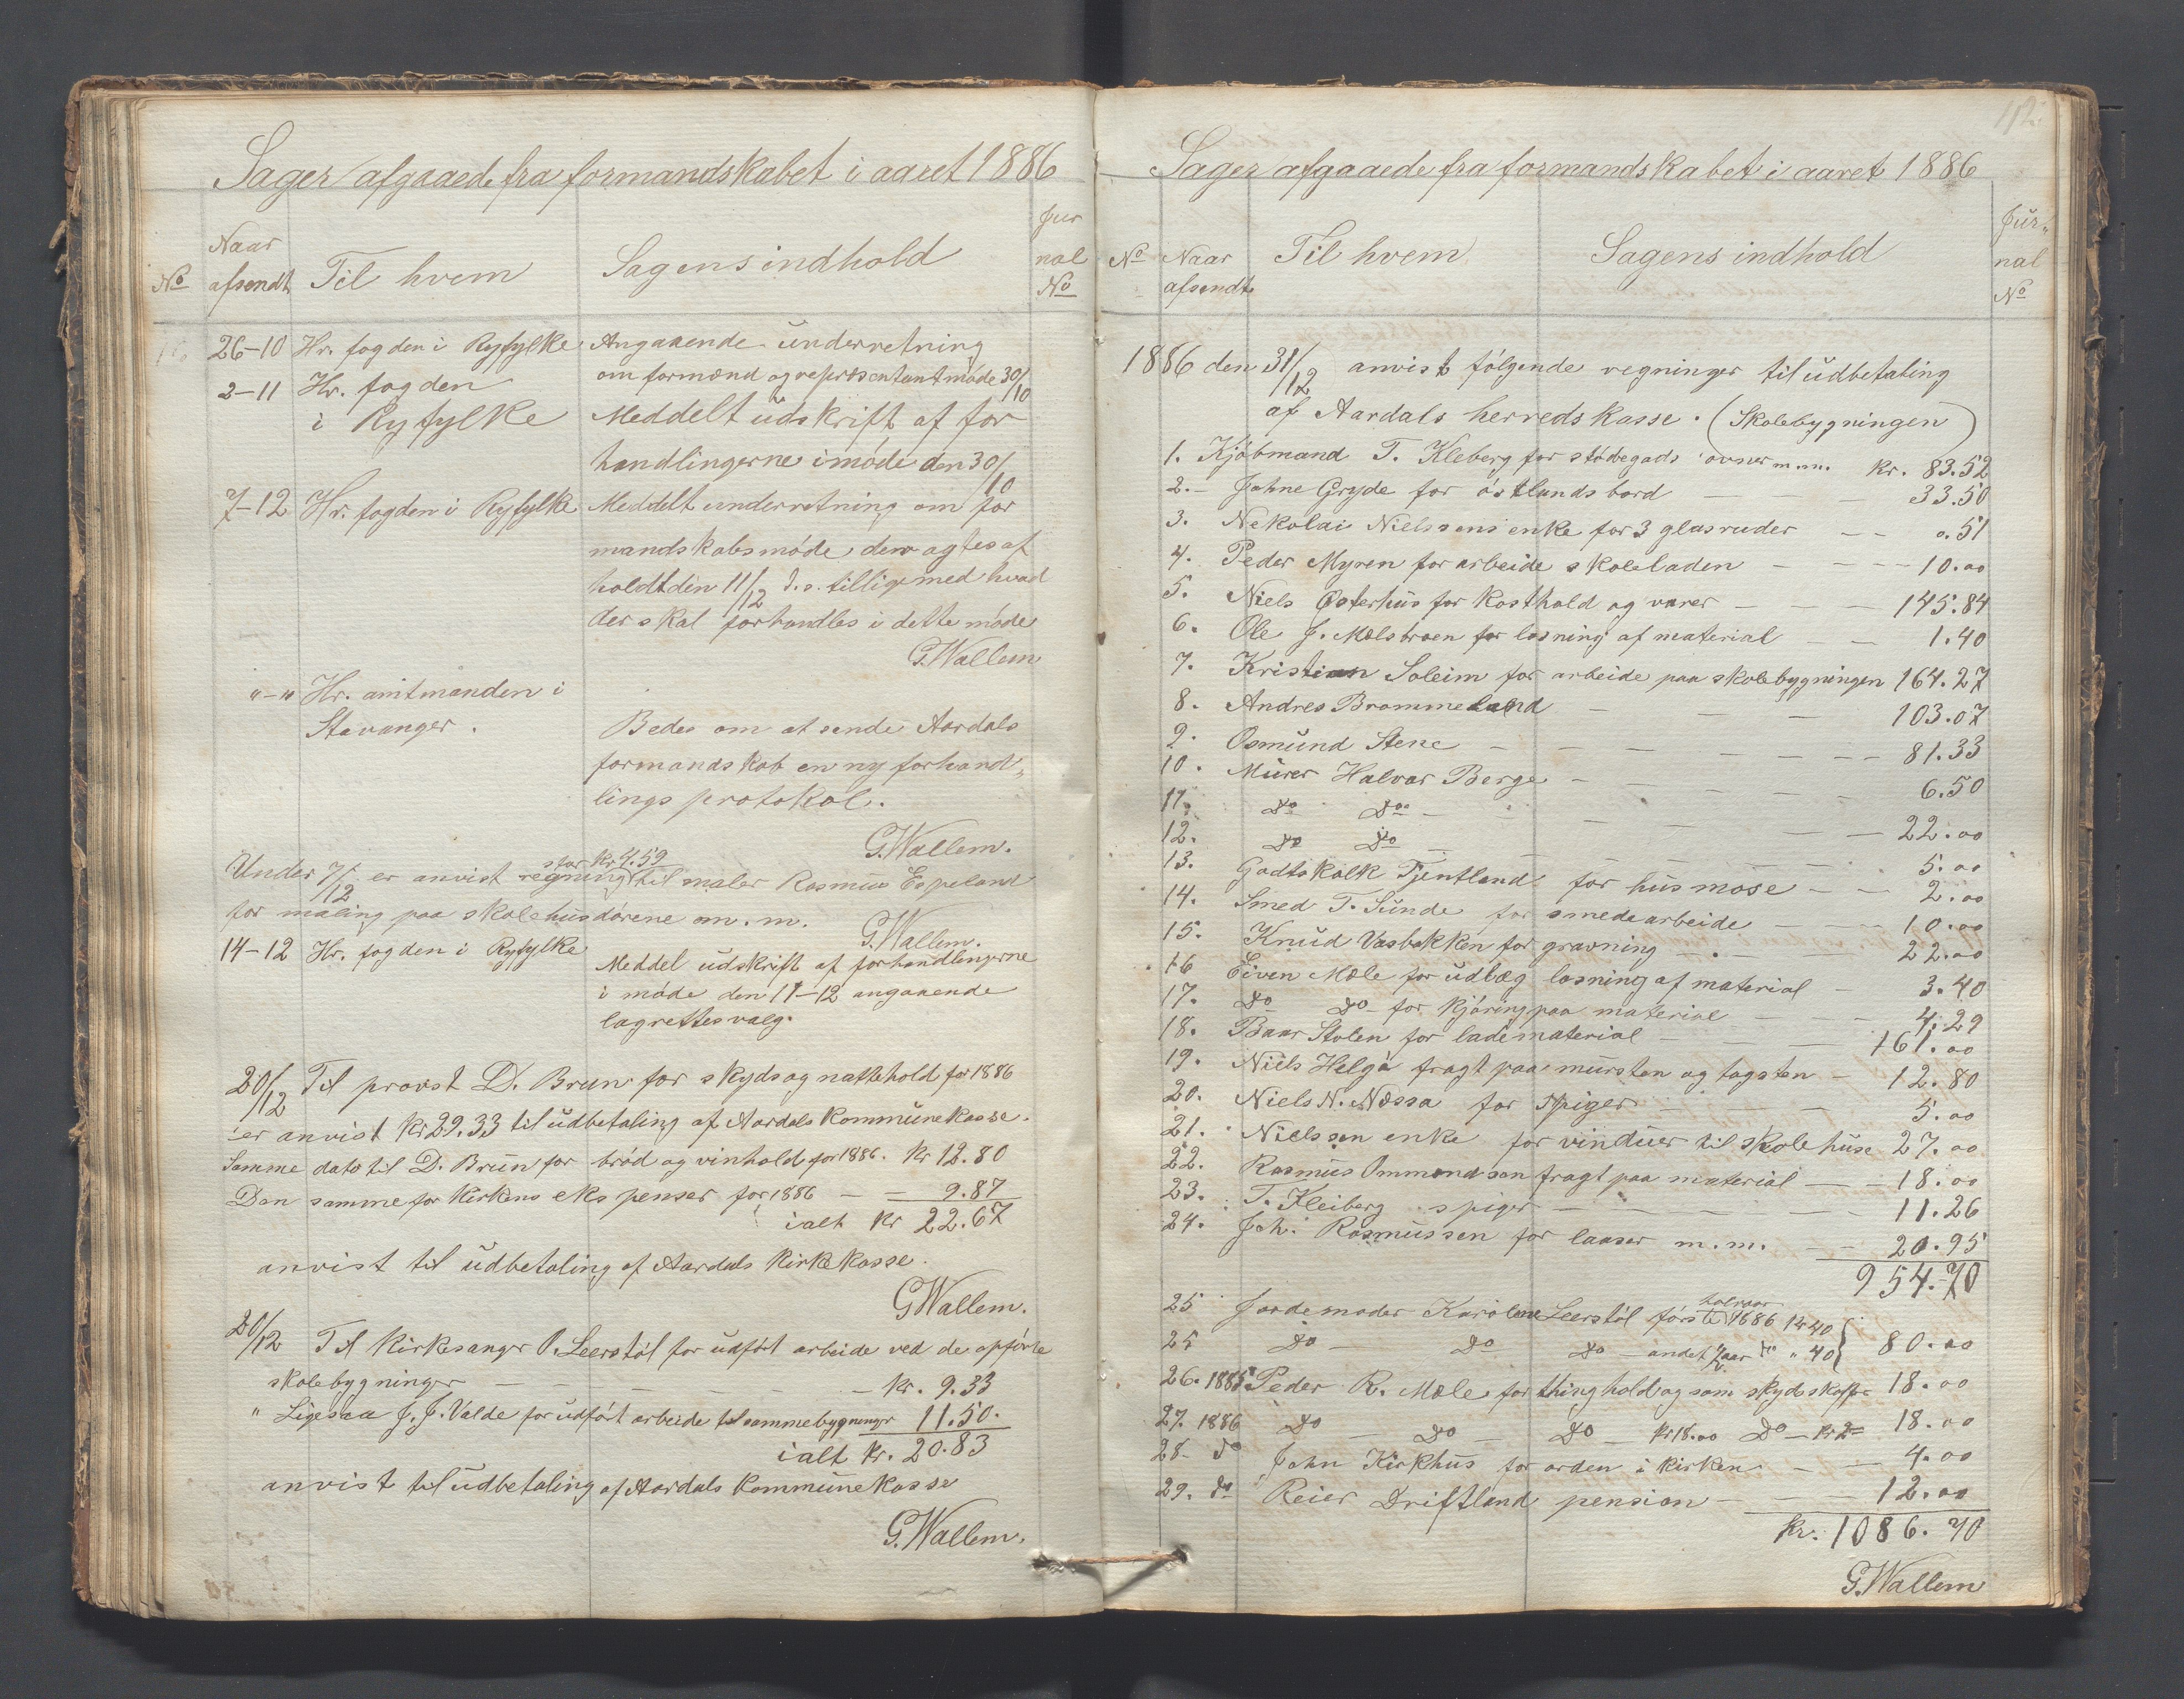 Sager afgaaede fra formandskabet i aaret 1886
No
Naar afsendt
Til hvem
Sagens indhold
Jur nal No
26-10 Hr. fogden i Ryfylke Angaaende underretning
om formænd og repræsentantmøde 30/10
2-11 Hr. fogden
i Ryfylke Meddelt udskrift af for
handlingerne i møde den 30/10
7-12 Hr. fogden i Ryfylke Meddelt underretning om for
mandskabsmøde der agtes af
holdt den 11/12 d.a. tilligemed hvad
der skal forhandles i dette møde
G. Wallem
"-" Hr. amtmanden i
Stavanger. Bedes om at sende Aardals
formandskab en ny forhand„
lings protokol.
G. Wallem.
Under 7/12 er anvist regning stor kr 4.59 til maler Rasmus Espeland
for maling paa skolehusdørene m.m. G. Wallem.
14-12 Hr. fogden i Ryfylke Meddel udskrift af forhandlingerne
i møde den 11-12 angaaende
lagrettesvalg.
20/12 Til provst D. Brun for skyds og nattehold for 1886
er anvist kr 29.33 til udbetaling af Aardals kommunekasse.
Samme dato til D. Brun for brød og vinhold for 1886. Kr 12.80
Den samme for kirkens ekspenser for 1886 — — 9.87
ialt kr 22.67
anvist til udbetaling af Aardals kirkekasse.
G Wallem.
20/12 Til kirkesanger O. Leerstøl for udført arbeide ved de opførte
skolebygninger — — — — — kr. 9.33
" Ligesaa J. J. Valde for udført arbeide til samme bygninger 11.50.
ialt kr. 20.83
anvist til udbetaling af Aardals kommunekasse
G. Wallem.
Sager afgaaede fra formandskabet i aaret 1886
No
Naar afsendt
Til hvem
Sagens indhold
Jur„ nal No
1886 den 31/12 anvist følgende regninger til udbetaling
af Aardals herredskasse. (Skolebygningen)
1. Kjøbmand T. Kleberg for støbegods ovner m.m. kr. 83.52
2.- Johne Gryde for østlands bord — — — 33.50
3. Nekolai Nielssens enke for 3 glasruder — — 0.51
4. Peder Myren for arbeide skoleladen — — — 10.00
5. Niels Østerhus for kosthold og varer — — — 145.84
6. Ole J. Mælsbroen for losning af material — — 1.40
7. Kristian Soleim for arbeide paa skolebygningen 164.27
8. Andres Brommeland — — — 103.07
9. Osmund Stene — — — — — 81.33
10. Murer Halvar Berge — — — — — 6.50
11. Do Do — — — — — 22.00
12. Do Do — — — — — 5.00
13. Godtskalk Tjentland for husmose — — 2.00
14. Smed T. Sunde for smedearbeide — — — 10.00
15. Knud Vasbakken for gravning — — — 22.00
16 Eiven Mæle for udlæg losning af material — 3.40
17. Do Do for kjøring paa material — — — 4.29
18. Baar Stølen for lade material — — — 161.00
19. Niels Helgø fragt paa mursten og tagsten — 12.80
20. Niels N. Næssa for spiger — — 5.00
21. Nielssen enke for vinduer til skolehuse 27.00
22. Rasmus Ommondsen fragt paa material — — 18.00
23. T. Kleiberg spiger — — — — — 11.26
24. Joh. Rasmussen for laaser m.m. — — 20.95
954.70
25 Jordemoder Karolene Leerstøl første halvaar 1886 kr 40
25 Do — Do Do — andet ½ aar do " 40 } 80.00
26. 1885 Peder R. Mæle for thinghold og som skydsskaffer 18.00
27. 1886 Do — Do — Do — kr 18.00 Do — kr 2 18.00
28- do John Kirkhus for orden i kirken — — 4.00
29. do Reier Driftland pension — — 12.00
kr. 1086.70
G. Wallem